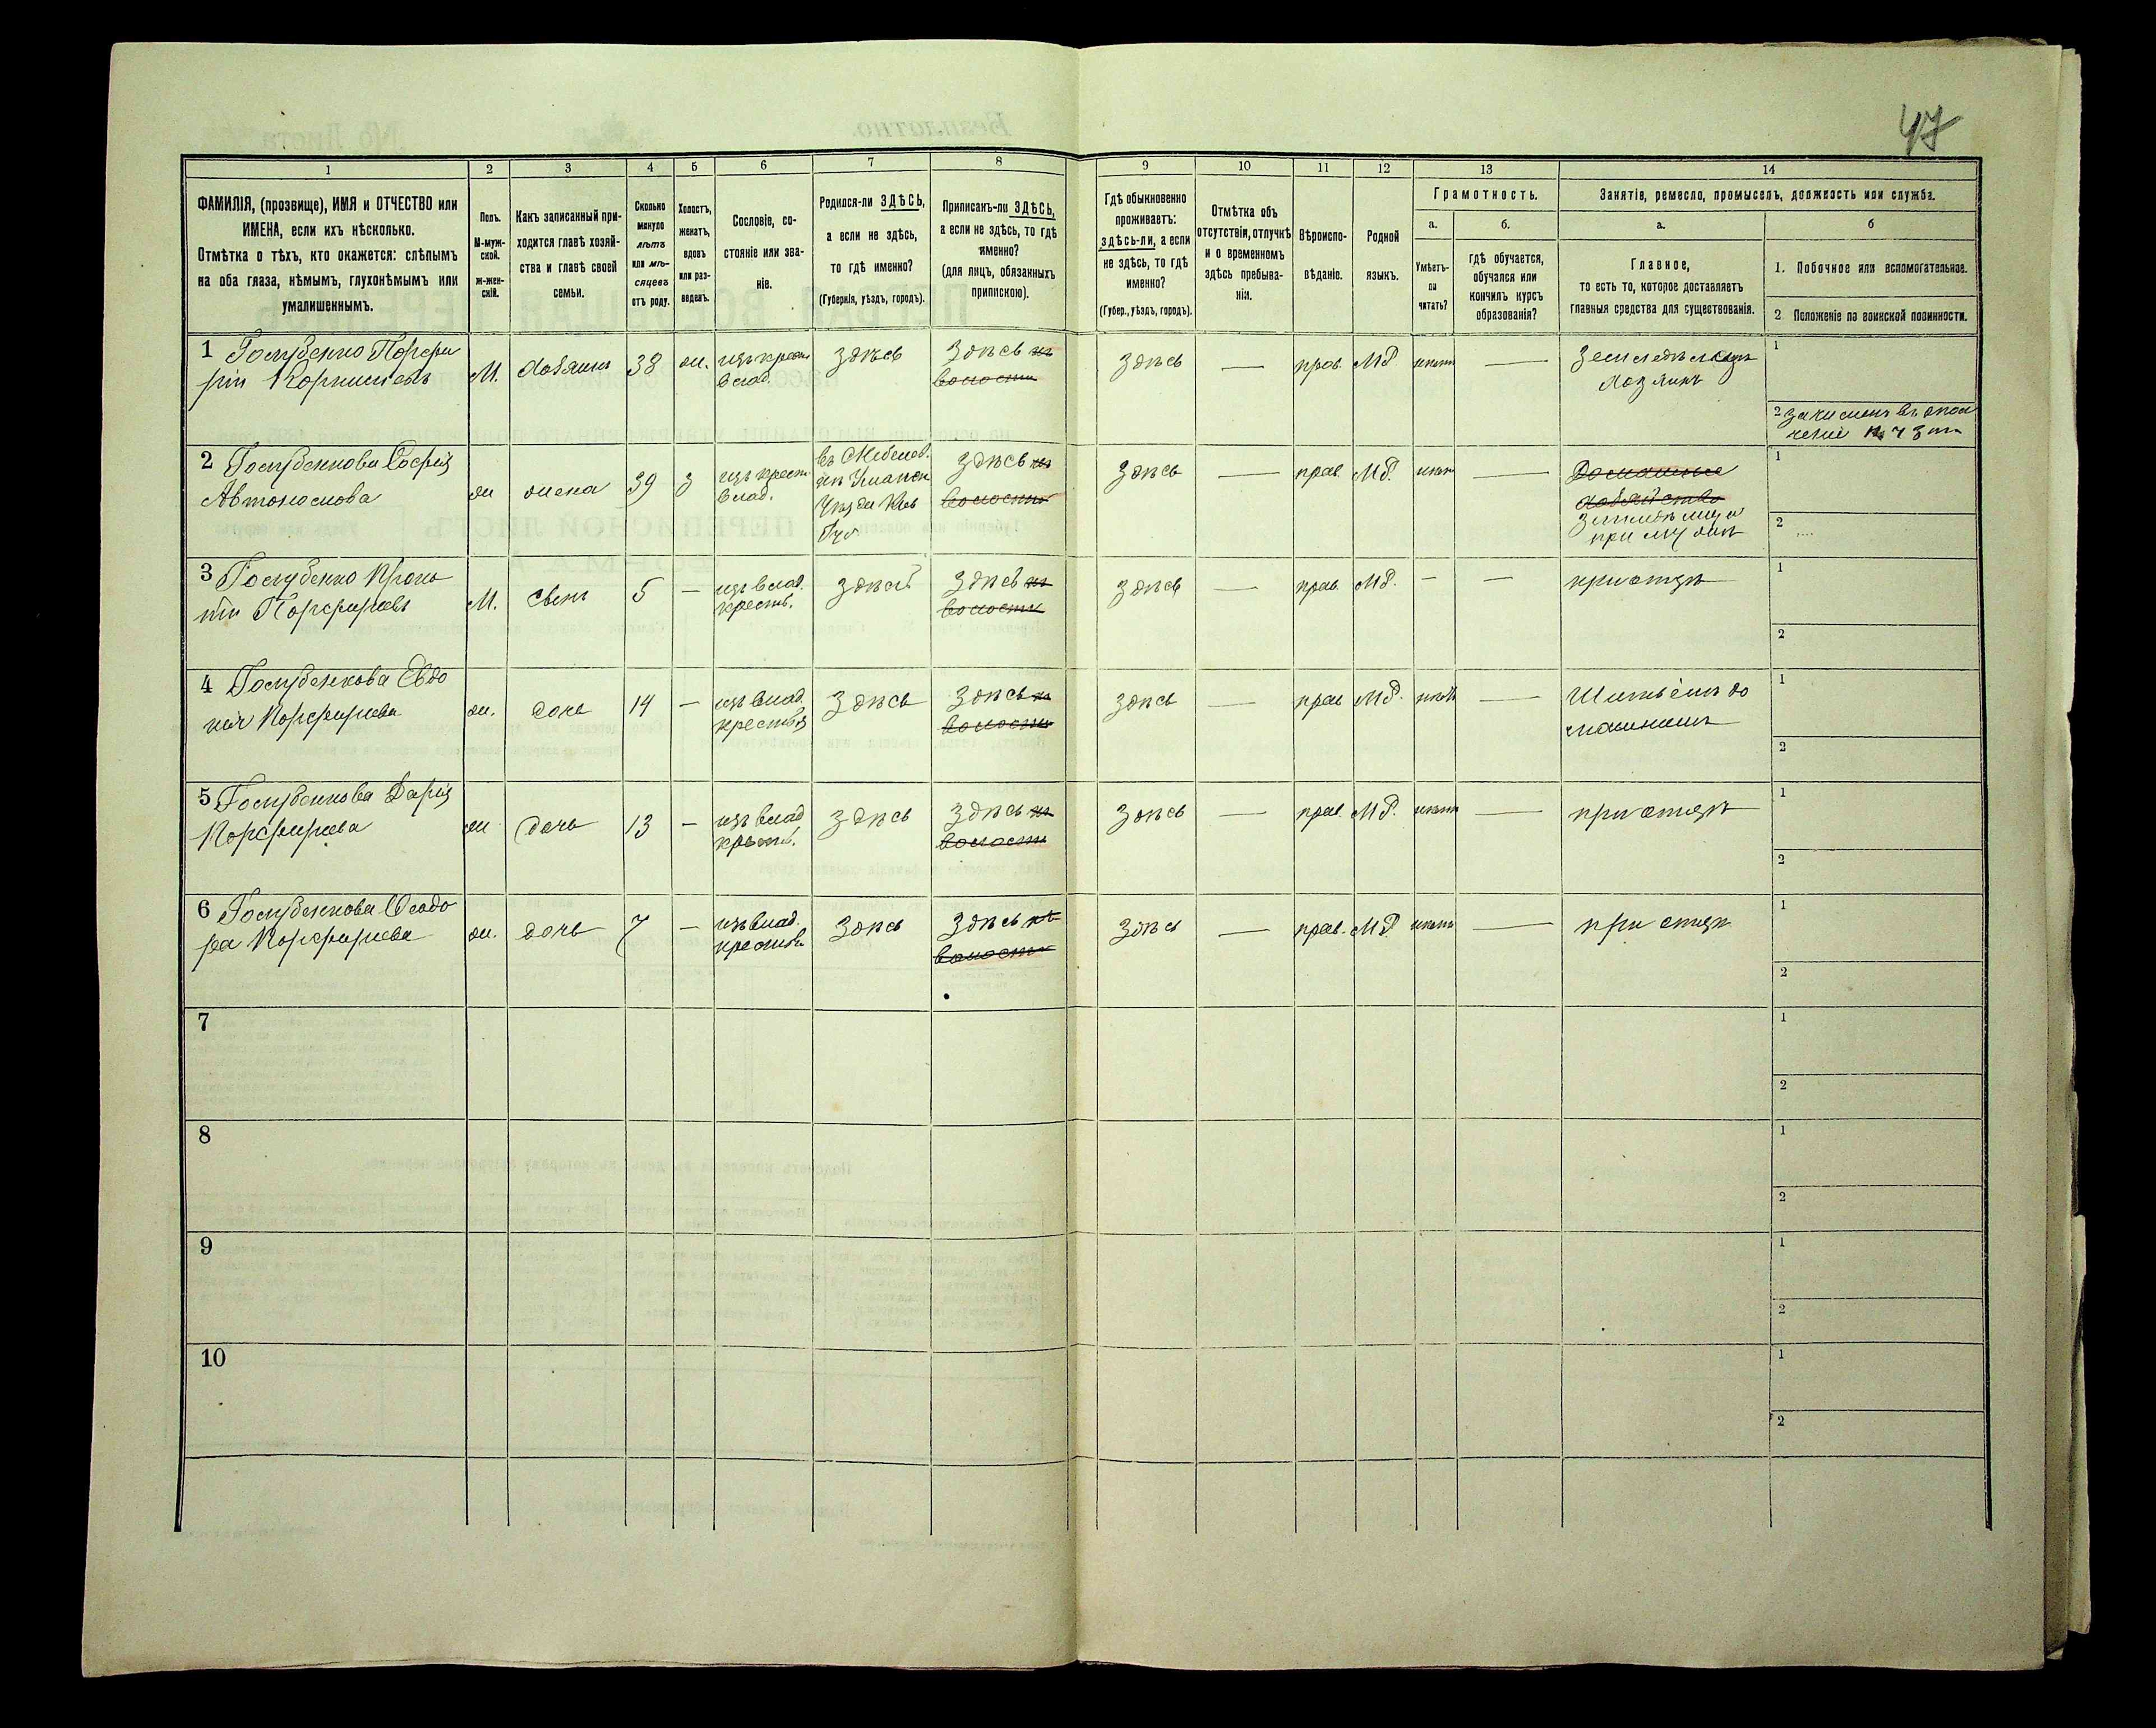 47
1
2
3
4
5
6
7
8
9
10
11
12
13
14
ФАМИЛІЯ, (прозвище), ИМЯ и ОТЧЕСТВО или
ИМЕНА, если ихъ нѣсколько.
Отмѣтка о тѣхъ, кто окажется: слѣпымъ
на оба глаза, нѣмымъ, глухонѣмымъ или
умалишеннымъ.
Полъ.
М-муж-
ской.
ж-жен-
скій.
Какъ записанный при-
ходится главѣ хозяй-
ства и главѣ своей
семьи.
Сколько
минуло
лѣтъ
или мѣ-
сяцевъ
отъ роду.
Холостъ,
женатъ,
вдовъ
или раз-
веденъ.
Сословіе, со-
стояніе или зва-
ніе.
Родился-ли ЗДѢСЬ,
а если не здѣсь,
то гдѣ именно?
(Губернія, уѣздъ, городъ).
Приписанъ-ли ЗДѢСЬ,
а если не здѣсь, то гдѣ
именно?
(для лицъ, обязанныхъ
припискою).
Гдѣ обыкновенно
проживаетъ:
здѣсь-ли, а если
не здѣсь, то гдѣ
именно?
(Губер., уѣздъ, городъ).
Отмѣтка объ
отсутствіи, отлучкѣ
и о временномъ
здѣсь пребыва-
ніи.
Вѣроиспо-
вѣданіе.
Родной
языкъ.
Грамотность.
а.
б.
Умѣетъ-
ли
читать?
гдѣ обучается,
обучался или
кончилъ курсъ
образованія?
Занятія, ремесло, промыселъ, должность или служба.
а.
б
Главное,
то есть то, которое доставляетъ
главныя средства для существованія.
1. Побочное или вспомогательное.
2 Положеніе по воинской повинности.
1 Голубенко Порфи
рій Корнилієвъ
М.
хозяинъ
38
ж.
изъ крест
влад.
здѣсь
здѣсь
волости
здѣсь
—
прав.
МР.
нѣтъ
—
Земледѣлецъ
хозяинъ
1
2
2 Голубенкова Софія
Автономова
ж
жена
39
З
изъ крест
влад.
Уманск
Уѣзда Кіев
Губ
здѣсь
волости
здѣсь
—
прав
МР.
нѣтъ
—
Домашнее
хозяйство
при мужѣ
1
2
3 Голубенко
Порфиріевъ
М.
сынъ
5
—
изъ влад.
крестьян.
здѣсь
здѣсь
волости
здѣсь
—
прав.
МР.
—
—
при отцѣ
1
2
4 Голубенкова Евдо
кія Порфиріева
ж.
дочь
14
—
изъ влад.
крестьян
здѣсь
здѣсь
волости
здѣсь
—
прав
МР.
нѣтъ
—
1
2
5 Голубенкова Дарія
Порфиріева
ж
дочь
13
—
изъ влад
крестьян.
здѣсь
здѣсь
волости
здѣсь
—
прав.
МР.
нѣтъ
—
при отцѣ
1
2
6 Голубенкова Ѳеодо
ра Порфиріева
ж.
дочь
7
—
изъ влад.
крестьян
здѣсь
здѣсь
волости
здѣсь
—
прав.
МР
нѣтъ
—
при отцѣ
1
2
7
1
2
8
1
2
9
1
2
10
1
2